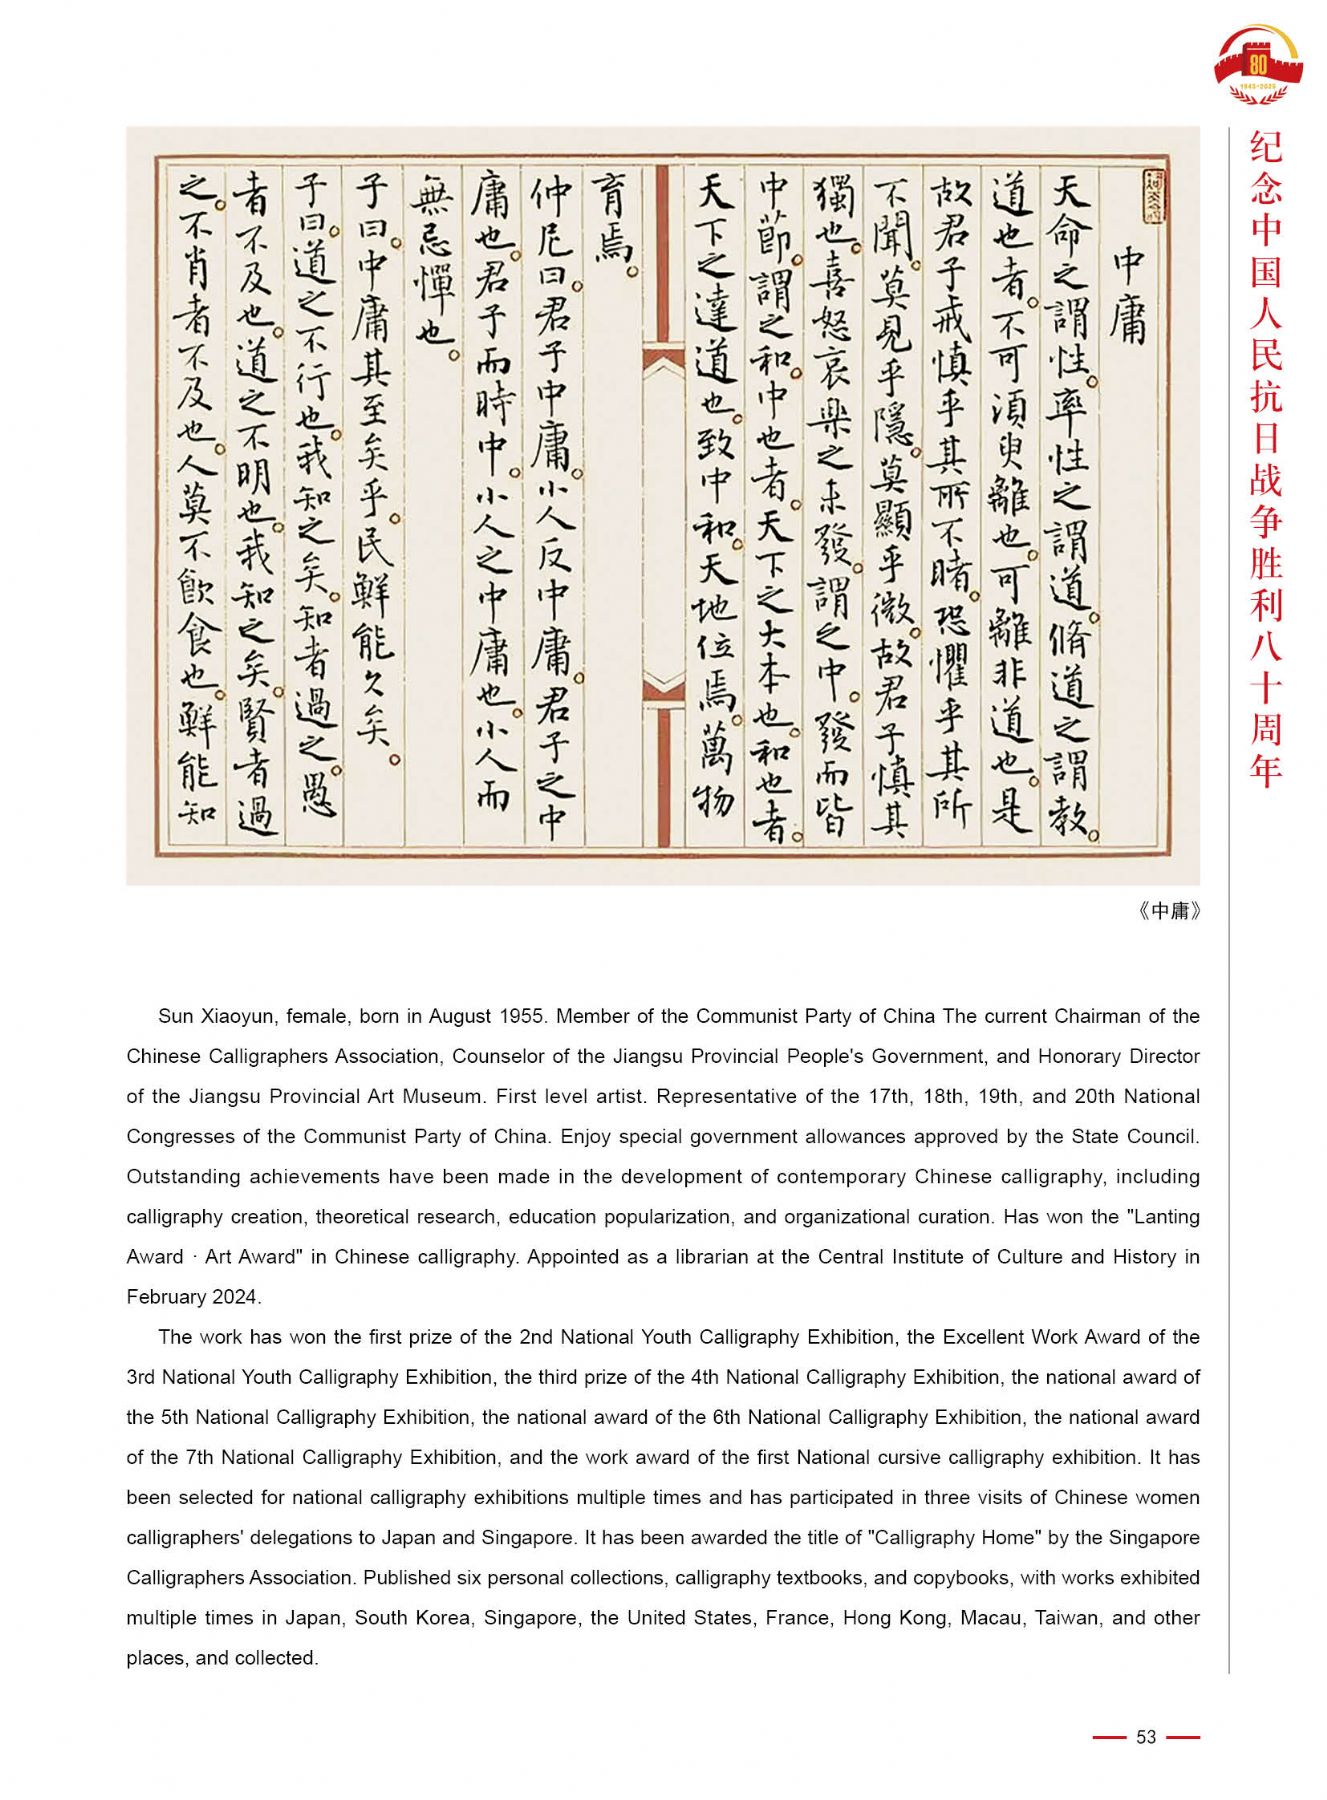 80
1945-2025
纪念中国人民抗日战争胜利八十周年
中庸
天命之謂性。率性之謂道。脩道之謂教。
道也者。不可須臾離也。可離非道也。是
故君子戒慎乎其所不睹。恐懼乎其所
不聞。莫見乎隱。莫顯乎微。故君子慎其
獨也。喜怒哀樂之未發。謂之中。發而皆
中節。謂之和。中也者。天下之大本也。和也者。
天下之達道也。致中和。天地位焉。萬物
育焉。
仲尼曰。君子中庸。小人反中庸。君子之中
庸也。君子而時中。小人之中庸也。小人而
無忌憚也。
子曰。中庸其至矣乎。民鮮能久矣。
子曰。道之不行也。我知之矣。知者過之。愚
者不及也。道之不明也。我知之矣。賢者過
之。不肖者不及也。人莫不飲食也。鮮能知
《中庸》
Sun Xiaoyun, female, born in August 1955. Member of the Communist Party of China The current Chairman of the
Chinese Calligraphers Association, Counselor of the Jiangsu Provincial People's Government, and Honorary Director
of the Jiangsu Provincial Art Museum. First level artist. Representative of the 17th, 18th, 19th, and 20th National
Congresses of the Communist Party of China. Enjoy special government allowances approved by the State Council.
Outstanding achievements have been made in the development of contemporary Chinese calligraphy, including
calligraphy creation, theoretical research, education popularization, and organizational curation. Has won the "Lanting
Award · Art Award" in Chinese calligraphy. Appointed as a librarian at the Central Institute of Culture and History in
February 2024.
The work has won the first prize of the 2nd National Youth Calligraphy Exhibition, the Excellent Work Award of the
3rd National Youth Calligraphy Exhibition, the third prize of the 4th National Calligraphy Exhibition, the national award of
the 5th National Calligraphy Exhibition, the national award of the 6th National Calligraphy Exhibition, the national award
of the 7th National Calligraphy Exhibition, and the work award of the first National cursive calligraphy exhibition. It has
been selected for national calligraphy exhibitions multiple times and has participated in three visits of Chinese women
calligraphers' delegations to Japan and Singapore. It has been awarded the title of "Calligraphy Home" by the Singapore
Calligraphers Association. Published six personal collections, calligraphy textbooks, and copybooks, with works exhibited
multiple times in Japan, South Korea, Singapore, the United States, France, Hong Kong, Macau, Taiwan, and other
places, and collected.
53